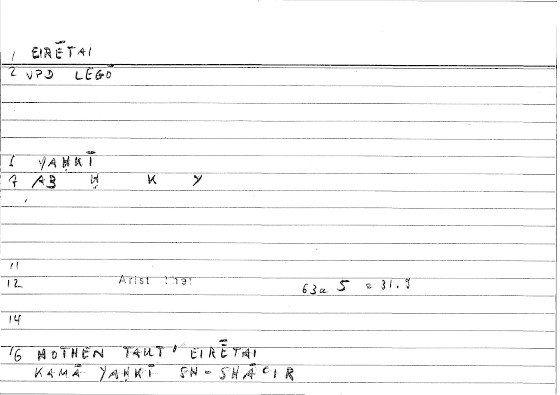 1 EIRĒTAI
2 VPD LEGŌ
6 YAḤKĪ
7 AB Ḥ K Y
11
12 Arist 63a 5 = 31.9
14
16 HOTHEN TAUT' EIRĒTAI
KAMĀ YAḤKĪ SH-SHĀᶜIR